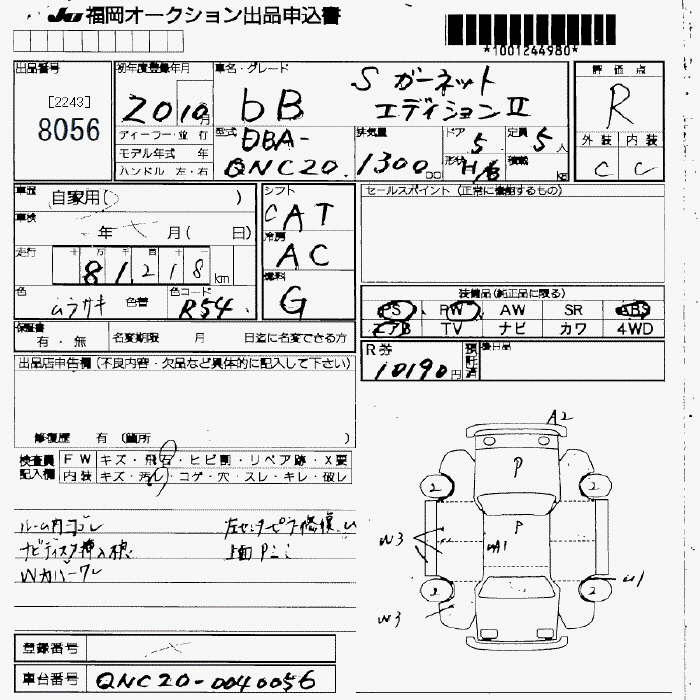 JU 福岡オークション出品申込書
*1001244980*
出品番号
[2243]
8056
初年度登録年月
20 10月
ディーラー・並行
モデル年式 年
ハンドル 左・右
車名・グレード
bB
S ガーネット
エディションⅡ
型式
DBA-
QNC20.
排気量
1300 cc
ドア
5
形状
H/B
定員
5人
積載
kg
評価点
R
外装 内装
C C
車歴
自家用( )
車検
年 月( 日)
走行
十 万 千 百 十
81218km
色
ムラサキ 色替
色コード
R54.
シフト
CAT
冷房
AC
燃料
G
セールスポイント(正常に機能するもの)
装備品(純正品に限る)
PS PW AW SR ABS
エアB TV ナビ カワ 4WD
保証書
有・無
名変期限 月 日迄に名変できる方
R券
10190円
預託済
後日品
出品店申告欄(不良内容・欠品など具体的に記入して下さい)
修復歴 有 (箇所 )
検査員
記入欄
FW キズ・飛石・ヒビ割・リペア跡・X要
内装 キズ・汚レ・コゲ・穴・スレ・キレ・破レ
ルーム内ヨゴレ
ナビディスク挿入
Wカバーワレ
左センターピラ修復
上面P
A2
P
P
2 2
2 2
W3
W3
A1
U1
登録番号
車台番号 QNC20-0040056